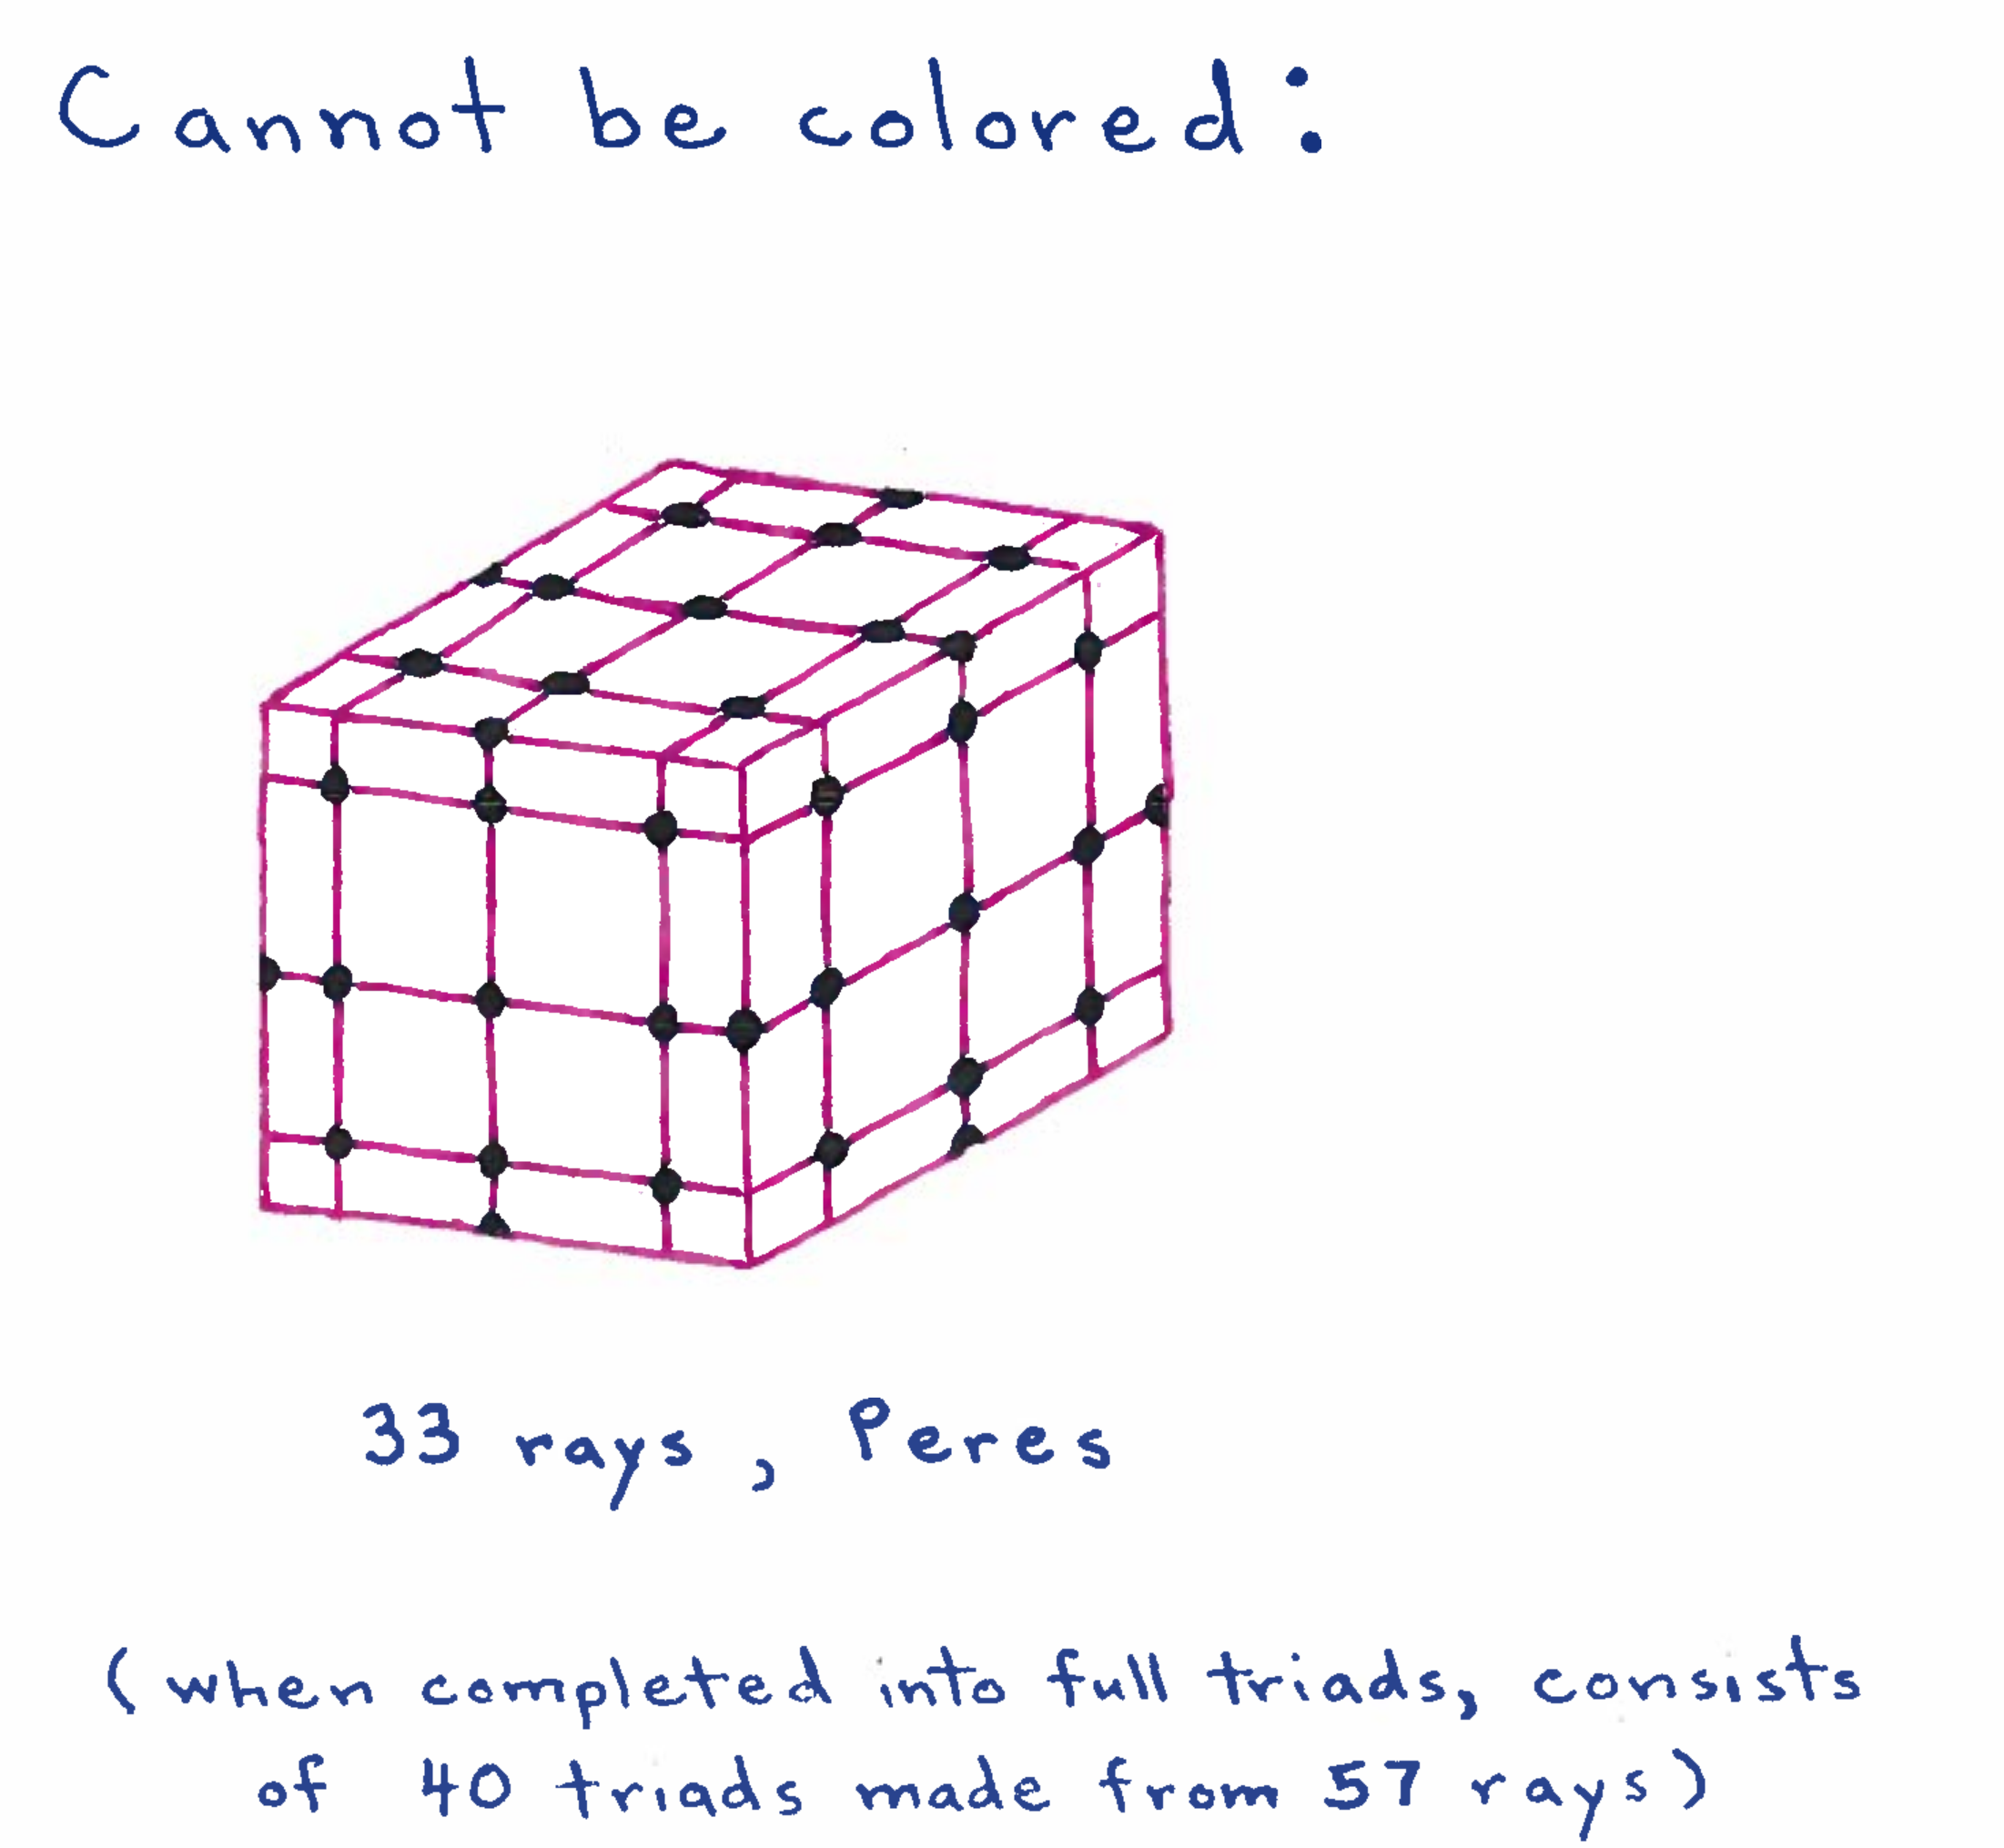 Cannot be colored:
33 rays, Peres
(when completed into full triads, consists
of 40 triads made from 57 rays)